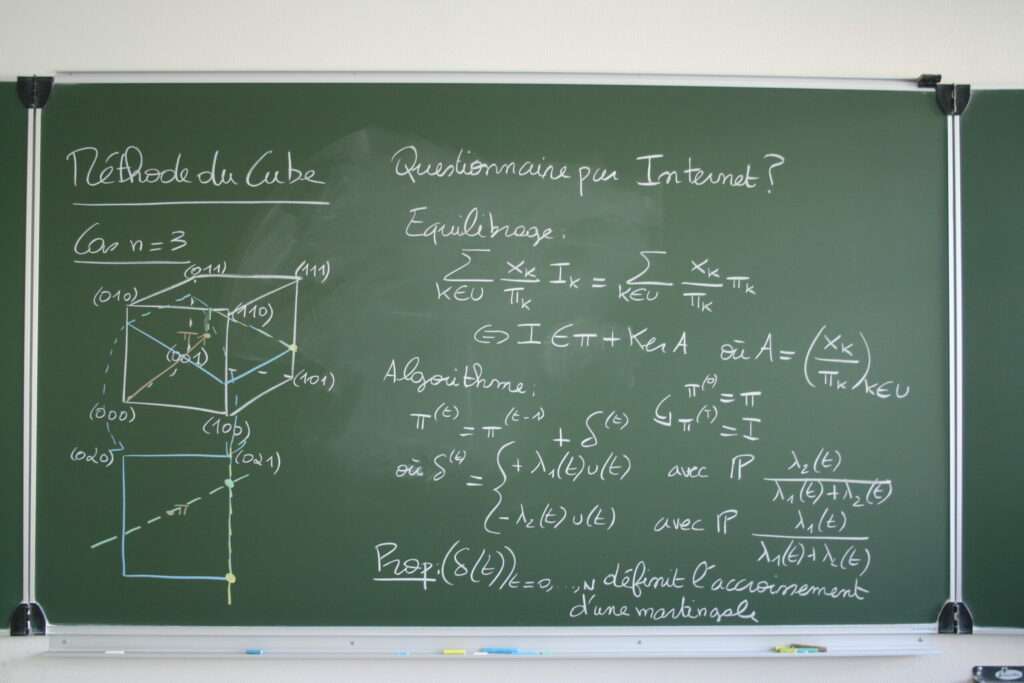 Méthode du Cube
Cas n = 3
(011)
(111)
(010)
(110)
π
(001)
(101)
(000)
(100)
(020)
(021)
π
Questionnaire par Internet ?
Equilibrage :
∑_{k∈U} x_k/π_k I_k = ∑_{k∈U} x_k/π_k π_k
⇔ I ∈ π + Ker A où A = (x_k/π_k)_{k∈U}
Algorithme :
π^(t) = π^(t-1) + δ^(t)
π^(0) = π
π^(T) = I
où δ^(t) = { + λ₁(t) u(t) avec ℙ λ₂(t)/(λ₁(t)+λ₂(t))
- λ₂(t) u(t) avec ℙ λ₁(t)/(λ₁(t)+λ₂(t))
Prop : (δ(t))_{t=0,...,N} définit l'accroissement
d'une martingale